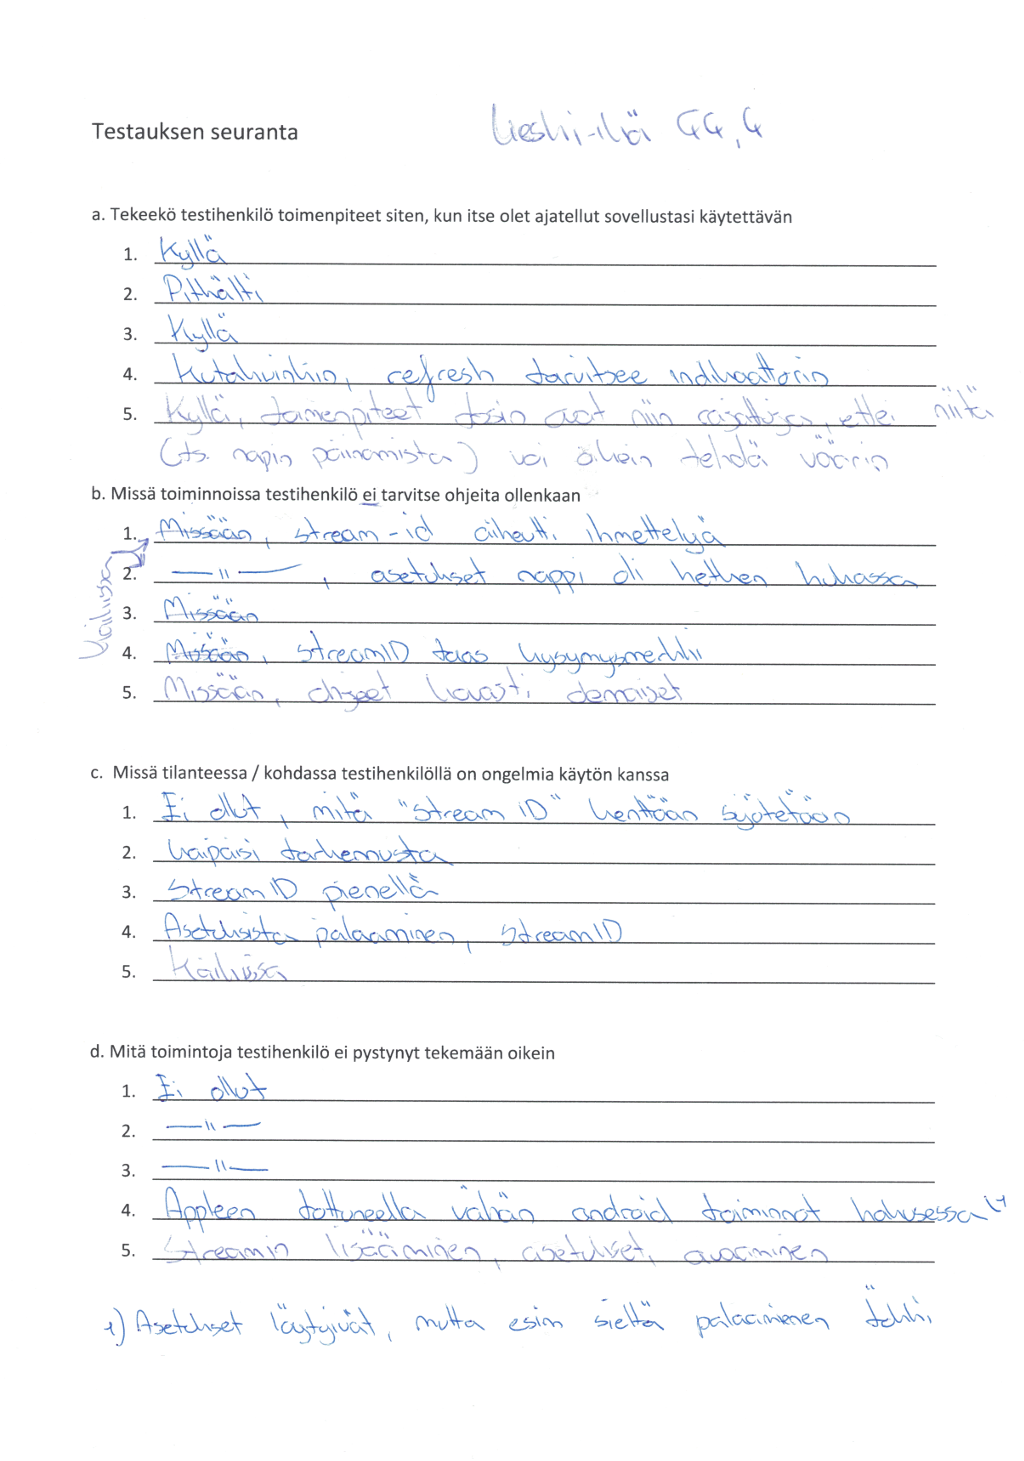 Testauksen seuranta Keski-ikä 44,4
a. Tekeekö testihenkilö toimenpiteet siten, kun itse olet ajatellut sovellustasi käytettävän
1. Kyllä
2. Pitkälti
3. Kyllä
4. Kutakuinkin, refresh tarvitsee indikaattorin
5. Kyllä, toimenpiteet tosin ovat niin rajattuja, ettei niitä
(ts. napin painamista) voi oikein tehdä väärin
b. Missä toiminnoissa testihenkilö ei tarvitse ohjeita ollenkaan
1. Missään, stream-id aiheutti ihmettelyä
2. —"—, asetukset nappi oli hetken hukassa
Kaikissa
3. Missään
4. Missään, streamID taas kysymysmerkki
5. Missään, ohjeet kovasti
c. Missä tilanteessa / kohdassa testihenkilöllä on ongelmia käytön kanssa
1. Ei ollut, mitä "Stream ID" kenttään syötetään
2. kaipaisi tarkennusta
3. StreamID pienellä
4. Asetuksista palaaminen, StreamID
5. Kaikissa
d. Mitä toimintoja testihenkilö ei pystynyt tekemään oikein
1. Ei ollut
2. —"—
3. —"—
4. Appleen tottuneella vähän android toiminnot hakusessa
5. Streamin lisääminen, asetukset, avaaminen
1) Asetukset löytyivät, mutta esim sieltä palaaminen tökki